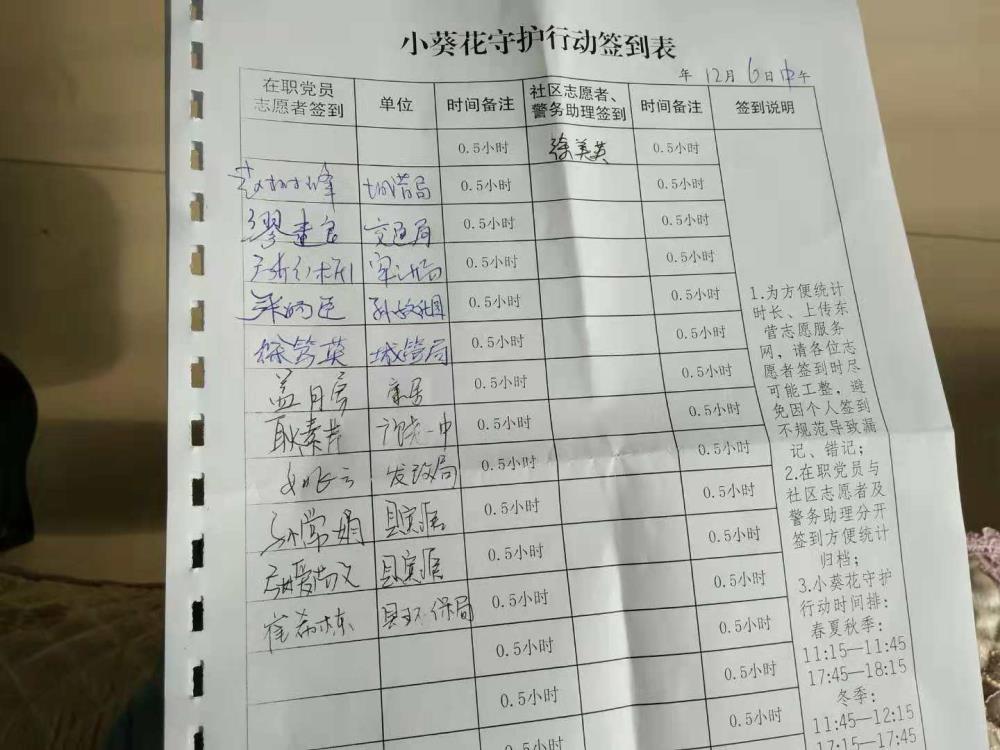 小葵花守护行动签到表
年 12月 6日 中午
在职党员志愿者签到 单位 时间备注 社区志愿者、警务助理签到 时间备注 签到说明
0.5小时 徐美英 0.5小时
0.5小时 0.5小时
缪建良 交通局 0.5小时 0.5小时
审计局 0.5小时 0.5小时
0.5小时 0.5小时
徐笃英 城管局 0.5小时 0.5小时
盖月房 0.5小时 0.5小时
耿素芹 一中 0.5小时 0.5小时
发改局 0.5小时 0.5小时
孙常娟 县实医 0.5小时 0.5小时
县实医 0.5小时 0.5小时
崔希栋 县环保局 0.5小时 0.5小时
0.5小时 0.5小时
0.5小时 0.5小时
0.5小时
1.为方便统计
时长、上传东
营志愿服务
网,请各位志
愿者签到时尽
可能工整,避
免因个人签到
不规范导致漏
记、错记;
2.在职党员与
社区志愿者及
警务助理分开
签到方便统计
归档;
3.小葵花守护
行动时间排:
春夏秋季:
11:15—11:45
17:45—18:15
冬季:
11:45—12:15
17:15—17:45